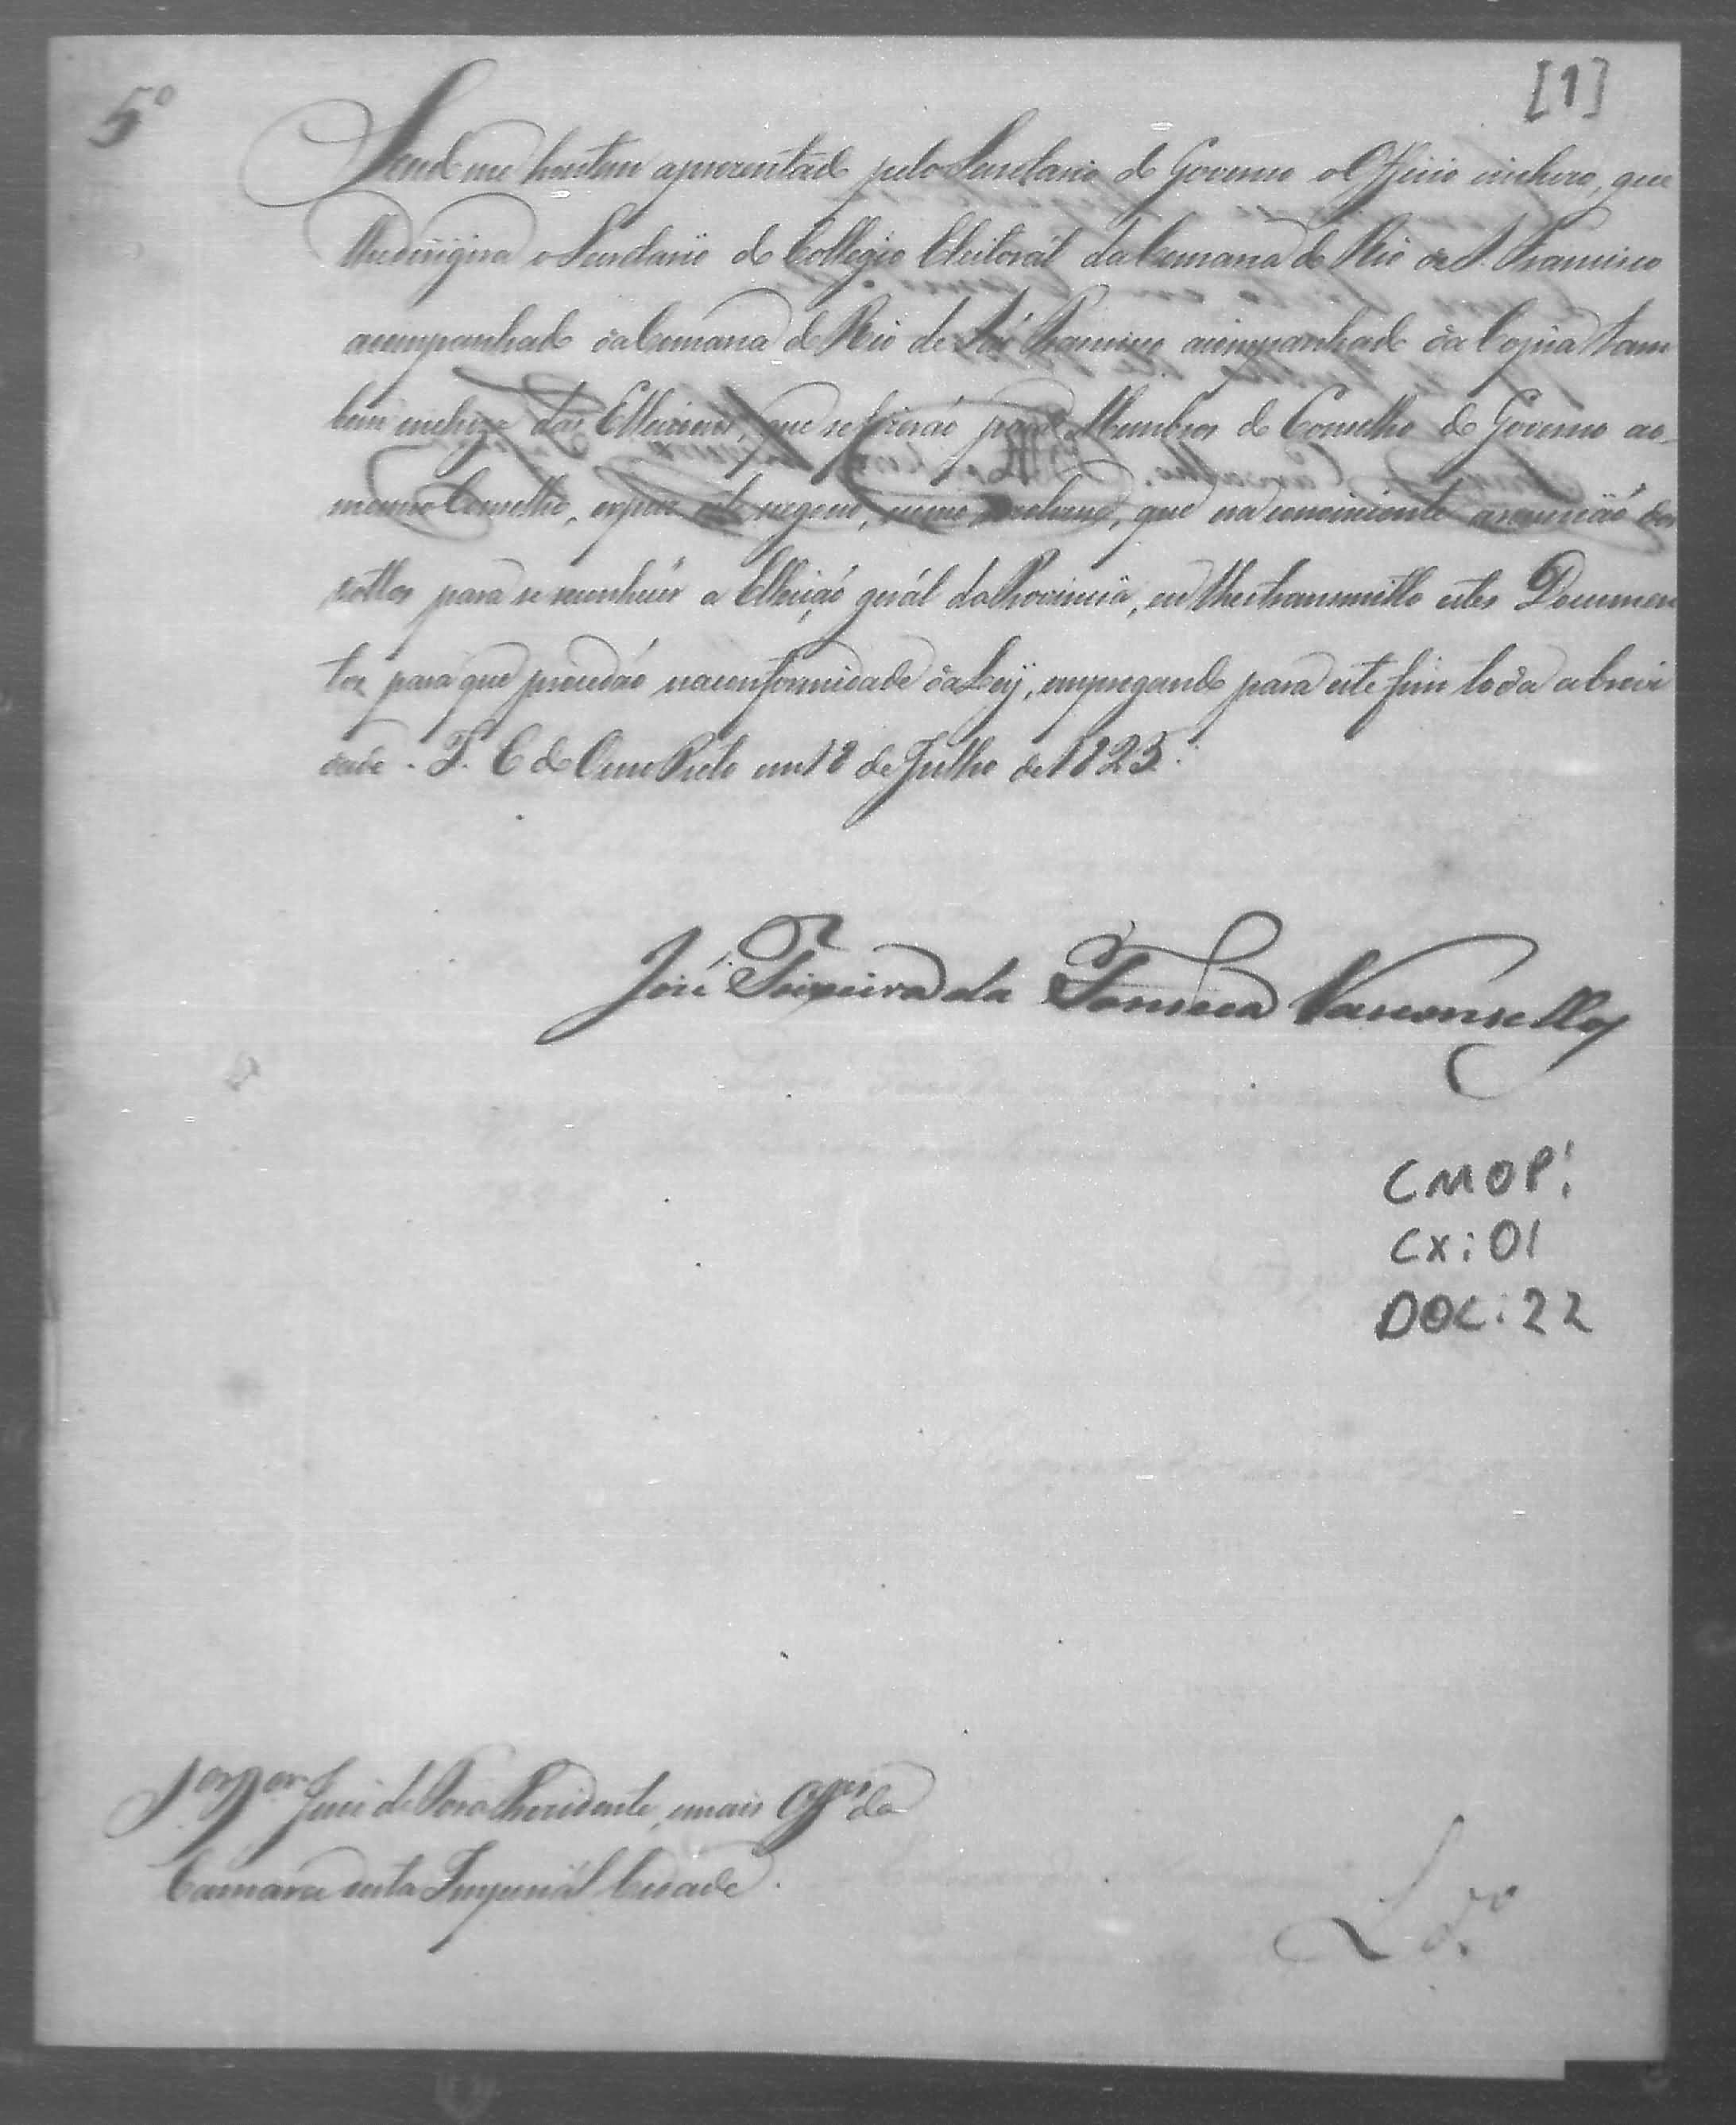 5º
[1]
Sendo me hontem aprezentado pelo Secretario do Governo o Officio incluzo, que
lhe derigira o Secretario do Collegio Eleitoral da Comarca do Rio de S. Francisco
acompanhado da Comarca do Rio de São Francisco acompanhado da Copia tam
bem incluza das Elleiçoens, que se fizerão para Membros do Conselho do Governo ao
mesmo Conselho, e que na
vottos para se concluir a Elleição gerál da Provincia, eu lhes transmitto estes Documen
tos para que procedão na conformidade da Ley, empregando para este fim toda a brevi
dade. I. C. do Ouro Preto em 18 de Julho de 1825.
José Teixeira da Fonseca Vasconcellos
CMOP:
CX: 01
DOC: 22
Snres Juiz de Fora Prezidente, e mais Offes da
Camara desta Imperiál Cidade.